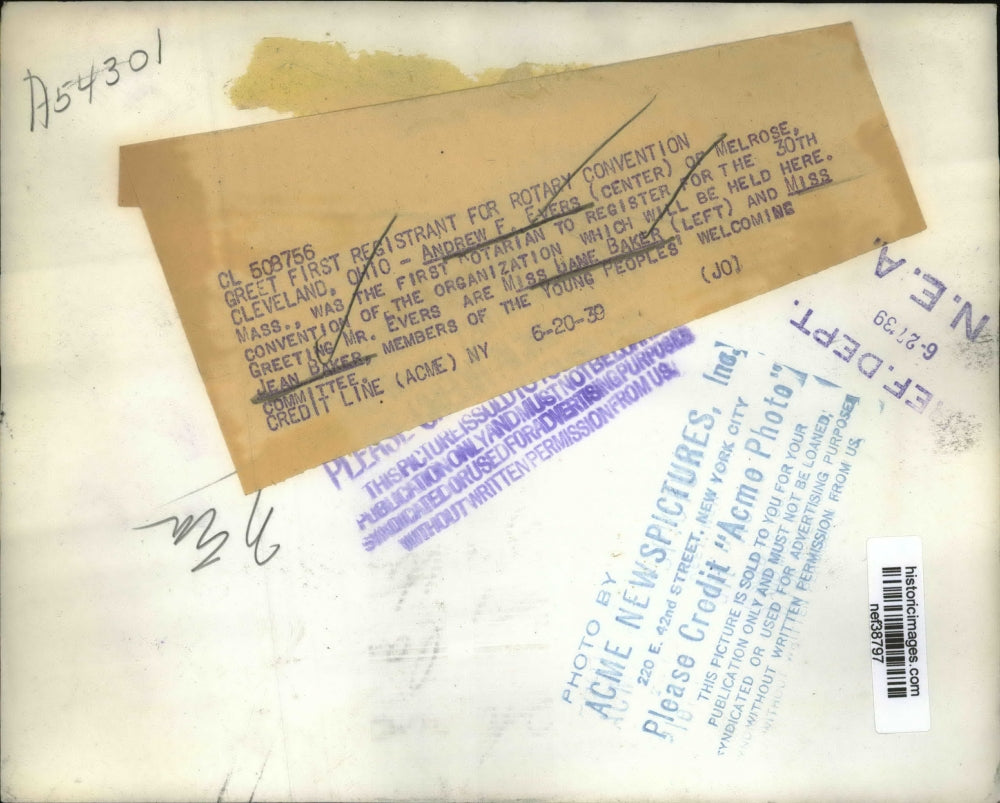 A54301
CL 508756
GREET FIRST REGISTRANT FOR ROTARY CONVENTION
CLEVELAND, OHIO - ANDREW F. EVERS (CENTER) OF MELROSE,
MASS., WAS THE FIRST ROTARIAN TO REGISTER FOR THE 30TH
CONVENTION OF THE ORGANIZATION WHICH WILL BE HELD HERE.
GREETING MR. EVERS ARE MISS JANE BAKER (LEFT) AND MISS
JEAN BAKER, MEMBERS OF THE YOUNG PEOPLES' WELCOMING
COMMITTEE.
CREDIT LINE (ACME) NY 6-20-39 (JO)
N.E.A.
6-27-39
REF. DEPT.
PLEASE
THIS PICTURE IS SOLD TO
PUBLICATION ONLY AND MUST NOT BE
SYNDICATED OR USED FOR ADVERTISING PURPOSES
WITHOUT WRITTEN PERMISSION FROM US.
PHOTO BY
ACME NEWSPICTURES, Inc.
220 E. 42nd STREET, NEW YORK CITY
Please Credit "Acme Photo"
THIS PICTURE IS SOLD TO YOU FOR YOUR
PUBLICATION ONLY AND MUST NOT BE LOANED,
SYNDICATED OR USED FOR ADVERTISING PURPOSES
WITHOUT WRITTEN PERMISSION FROM US
historicimages.com
nef38797